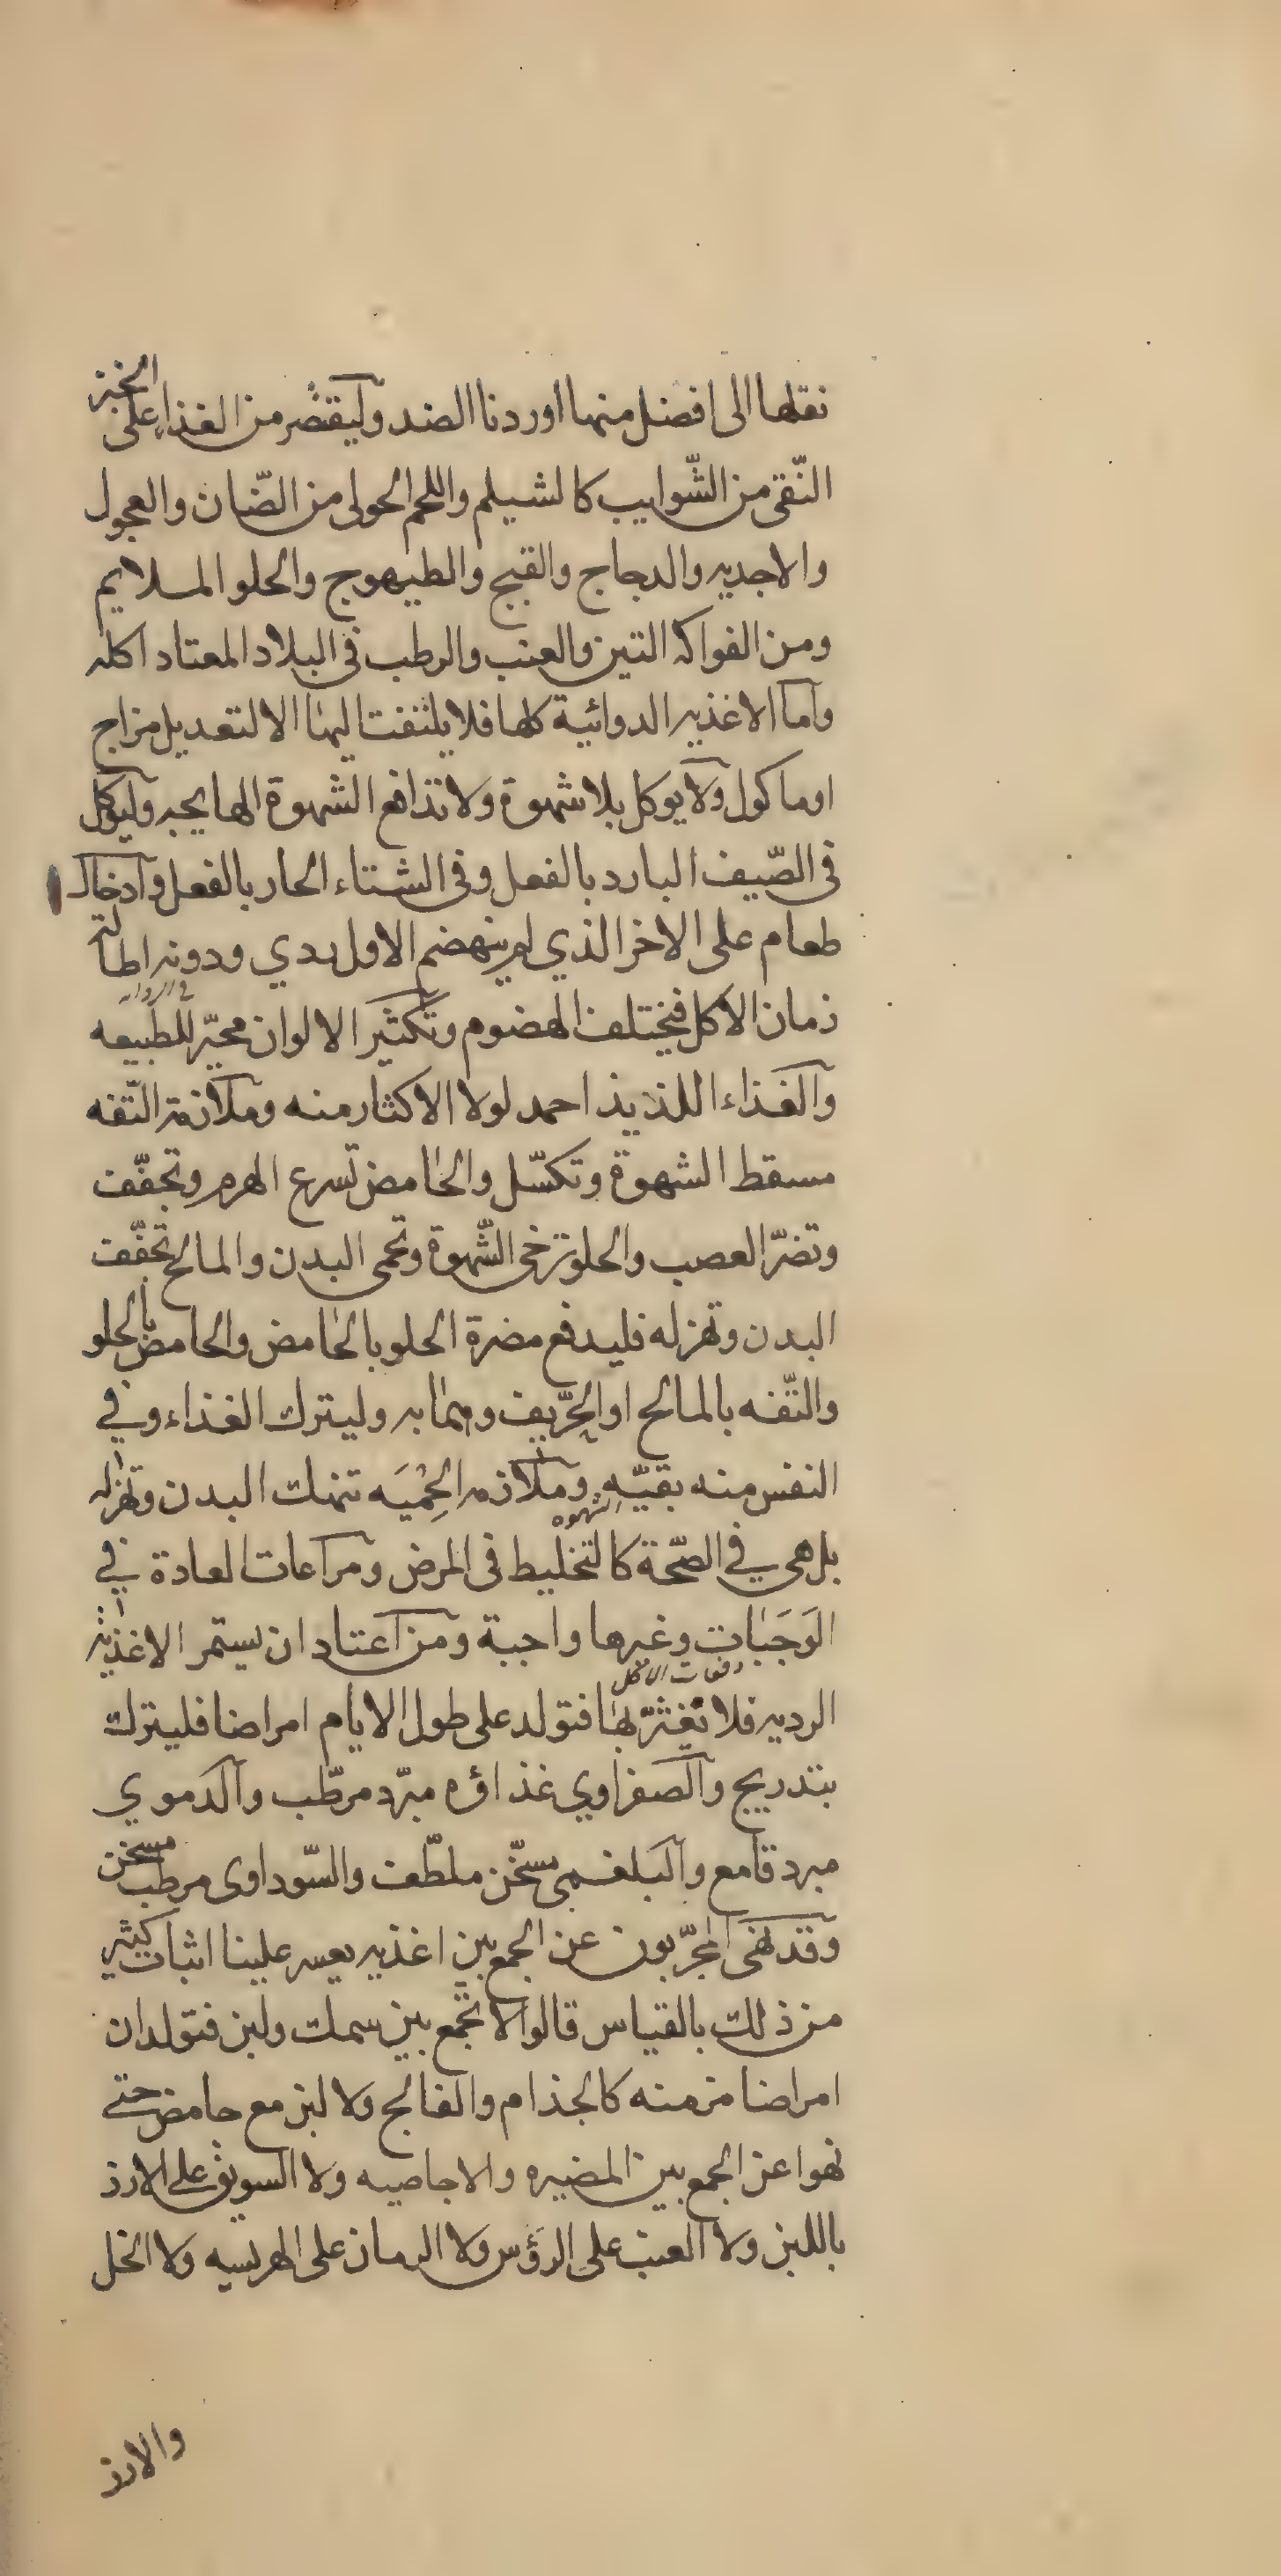 نقلها الى افضل منها اوردنا الضد وليقتصر من الغذاء على الخبز
النّقى من الشّوايب كالشيلم واللحم الحولى من الضّان والعجول
والاجديه والدجاج والقبج والطيهوج والحلو الملايم
ومن الفواكه التين والعنب والرطب فى البلاد المعتاد اكله
واما الاغذيه الدوائية كلها فلا يلتفت اليها الا لتعديل مزاج
اوماكول ولا يوكل بلا شهوة ولا تدافع الشهوة الهايجه وليوكل
فى الصّيف البارد بالفعل وفى الشتاء الحار بالفعل وادخال
طعام على الاخر الذي لم ينهضم الاول ردي ودونه اطالة
فى الرداه
زمان الاكل فيختلف الهضوم وتكثير الالوان محيّر للطبيعه
والغذاء اللذيذ احمد لولا الاكثار منه وملازمة التّفه
مسقط الشهوة وتكسّل والحامض تسرع الهرم وتجفّف
وتضرّ العصب والحلو ترخى الشّهوة وتحمى البدن والمالح تجفّف
البدن وتهزله فليدفع مضرة الحلو بالحامض والحامض بالحلو
والتّفه بالمالح او الحرّيف وهما به وليترك الغذاء وفي
النفس منه بقيّه وملازمه الحِمْيَه تنهك البدن وتهزله
الشهوه
بل هى في الصّحة كالتخليط فى المرض ومراعات العادة في
الوَجَبات وغيرها واجبة ومن اعتاد ان يستمر الاغذيه
دفعات الاكل
الرديه فلا تغترّ بها فتولد على طول الايام امراضا فليترك
بتدريج والصفراوي غذاؤه مبرّد مرطّب والدموي
مبرد قامع والبلغمى مسخّن ملطّف والسّوداوى مرطب مسخن
وقد نهى المجرّبون عن الجمع بين اغذيه يعسر علينا اثبات كثير
من ذلك بالقياس قالوا لا تجمع بين سمك ولبن فتولدان
امراضا مزمنه كالجذام والفالج ولا لبن مع حامض حتى
نهوا عن الجمع بين المضيره والاجاصيه ولا السويق على الارز
باللبن ولا العنب على الرؤس ولا الرمان على الهريسه ولا الخل
والارز